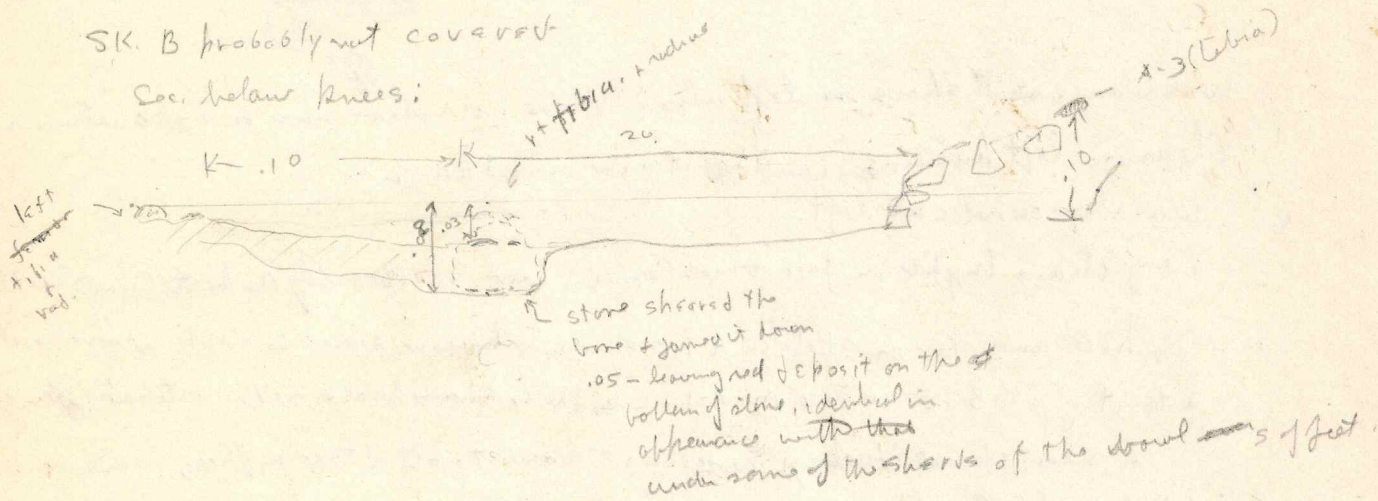 SK. B probably not covered
Sec. below knees:
rt tibia + radius
x-3 (tibia)
K- .10
20.
.10
left
femur
tibia
+
rad
.03
stone sheared the
bone + jammed it down
.05 - leaving red deposit on the
bottom of stone, identical in
appearance with that
under some of the sherds of the bowl s of feet.